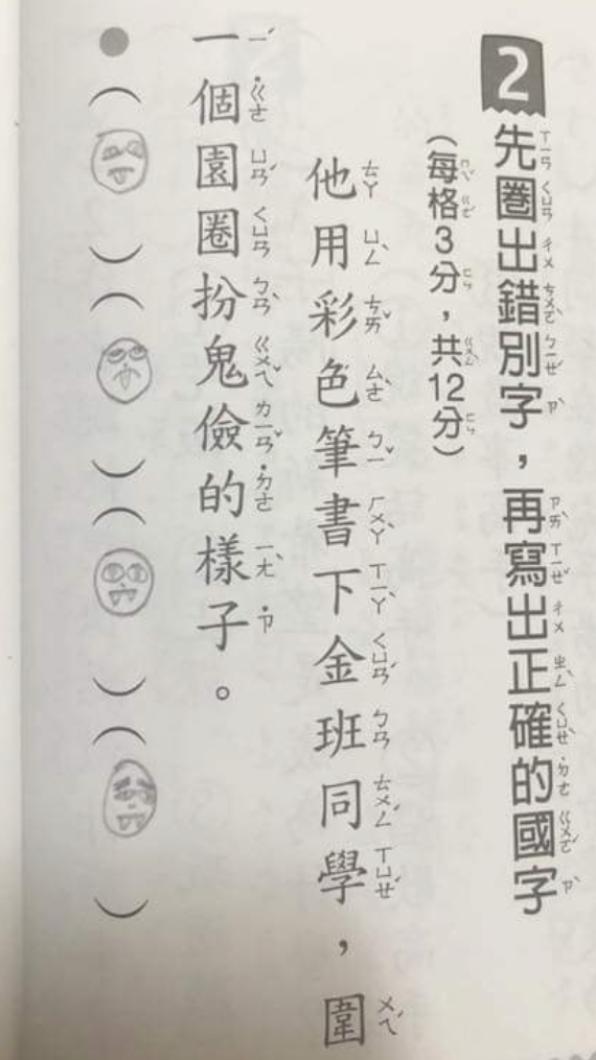 2 先圈出錯別字，再寫出正確的國字
（每格3分，共12分）
他用彩色筆書下金班同學，圍
一個園圈扮鬼儉的樣子。
●（　）（　）（　）（　）